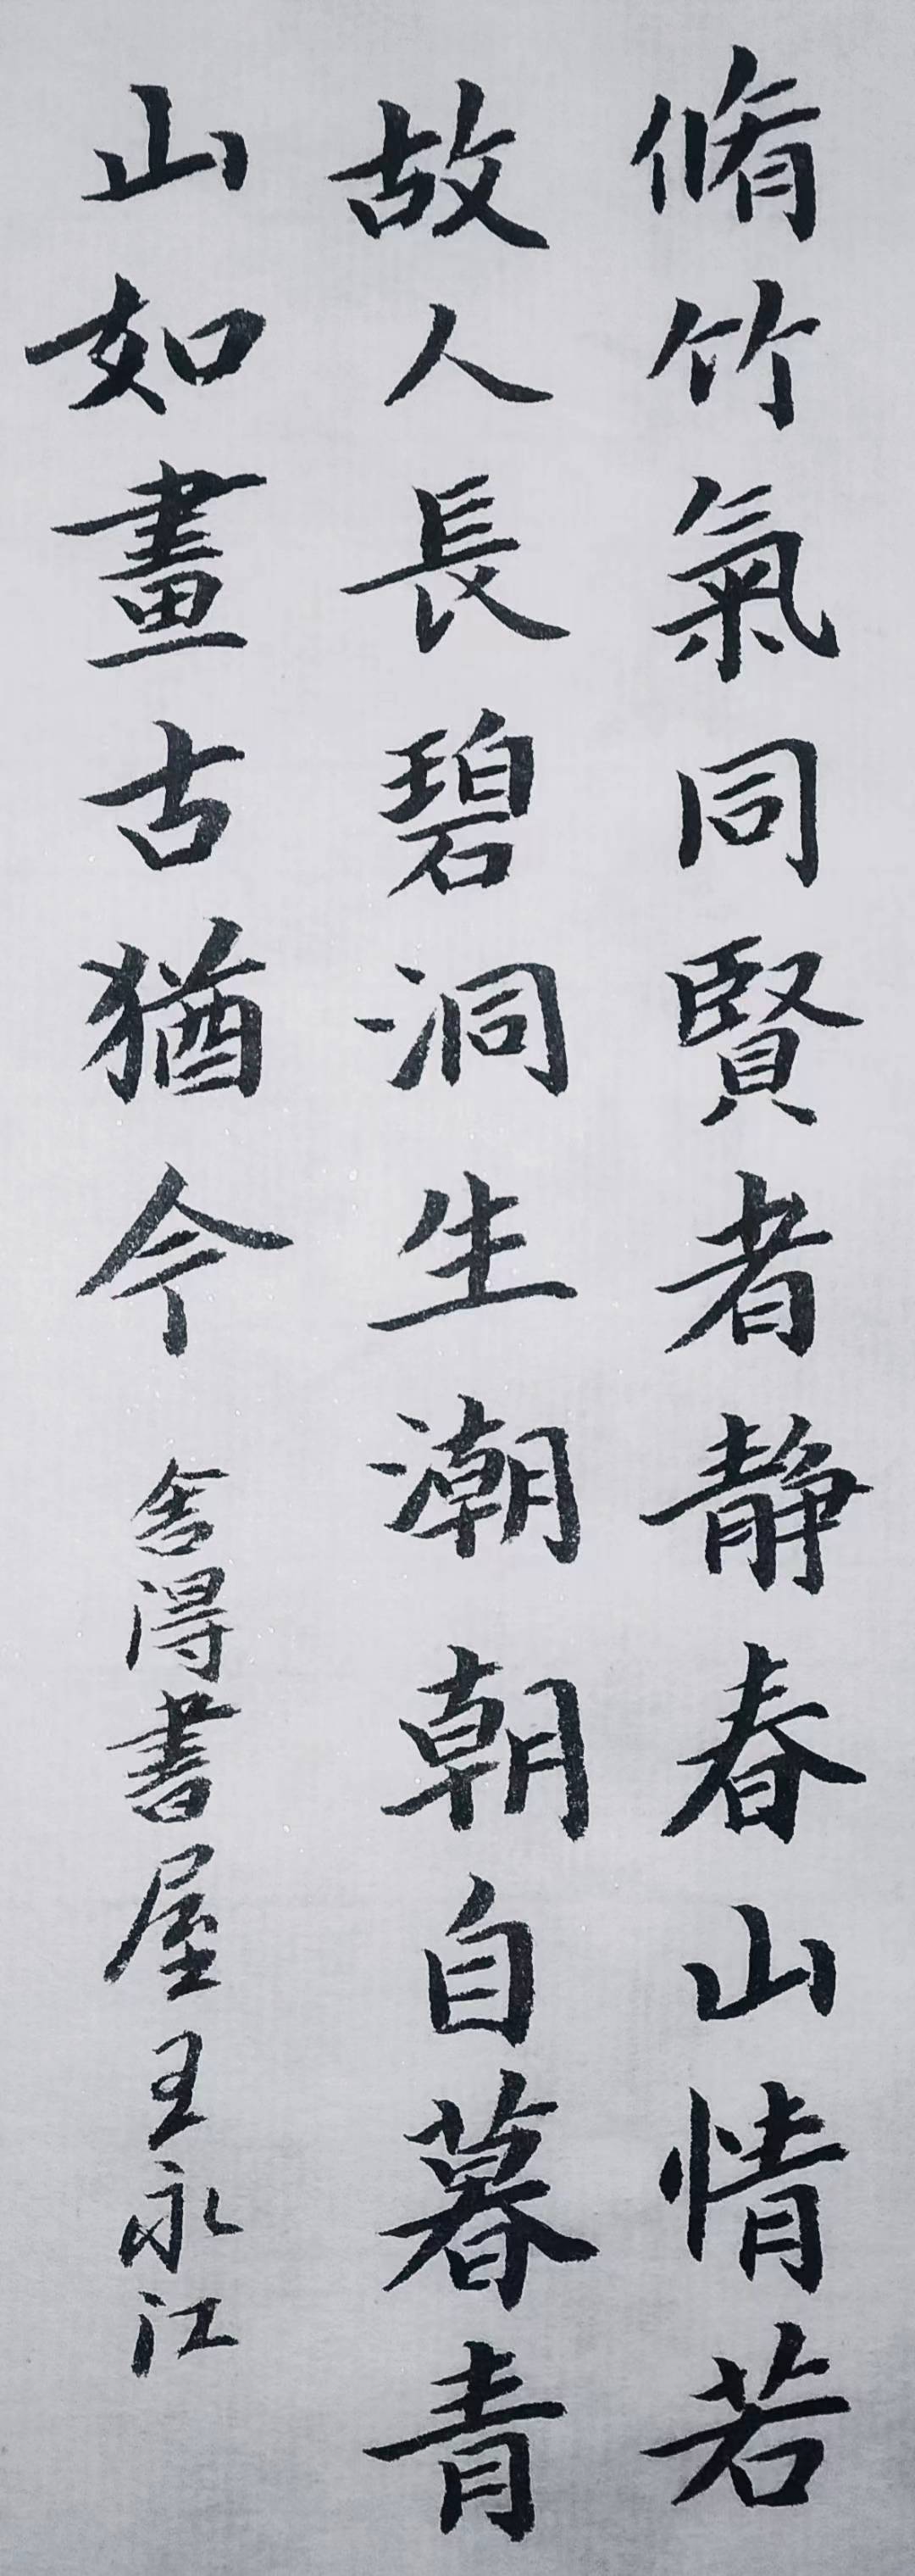 脩竹氣同賢者静春山情若
故人長碧洞生潮朝自暮青
山如畫古猶今
舍得書屋王永江